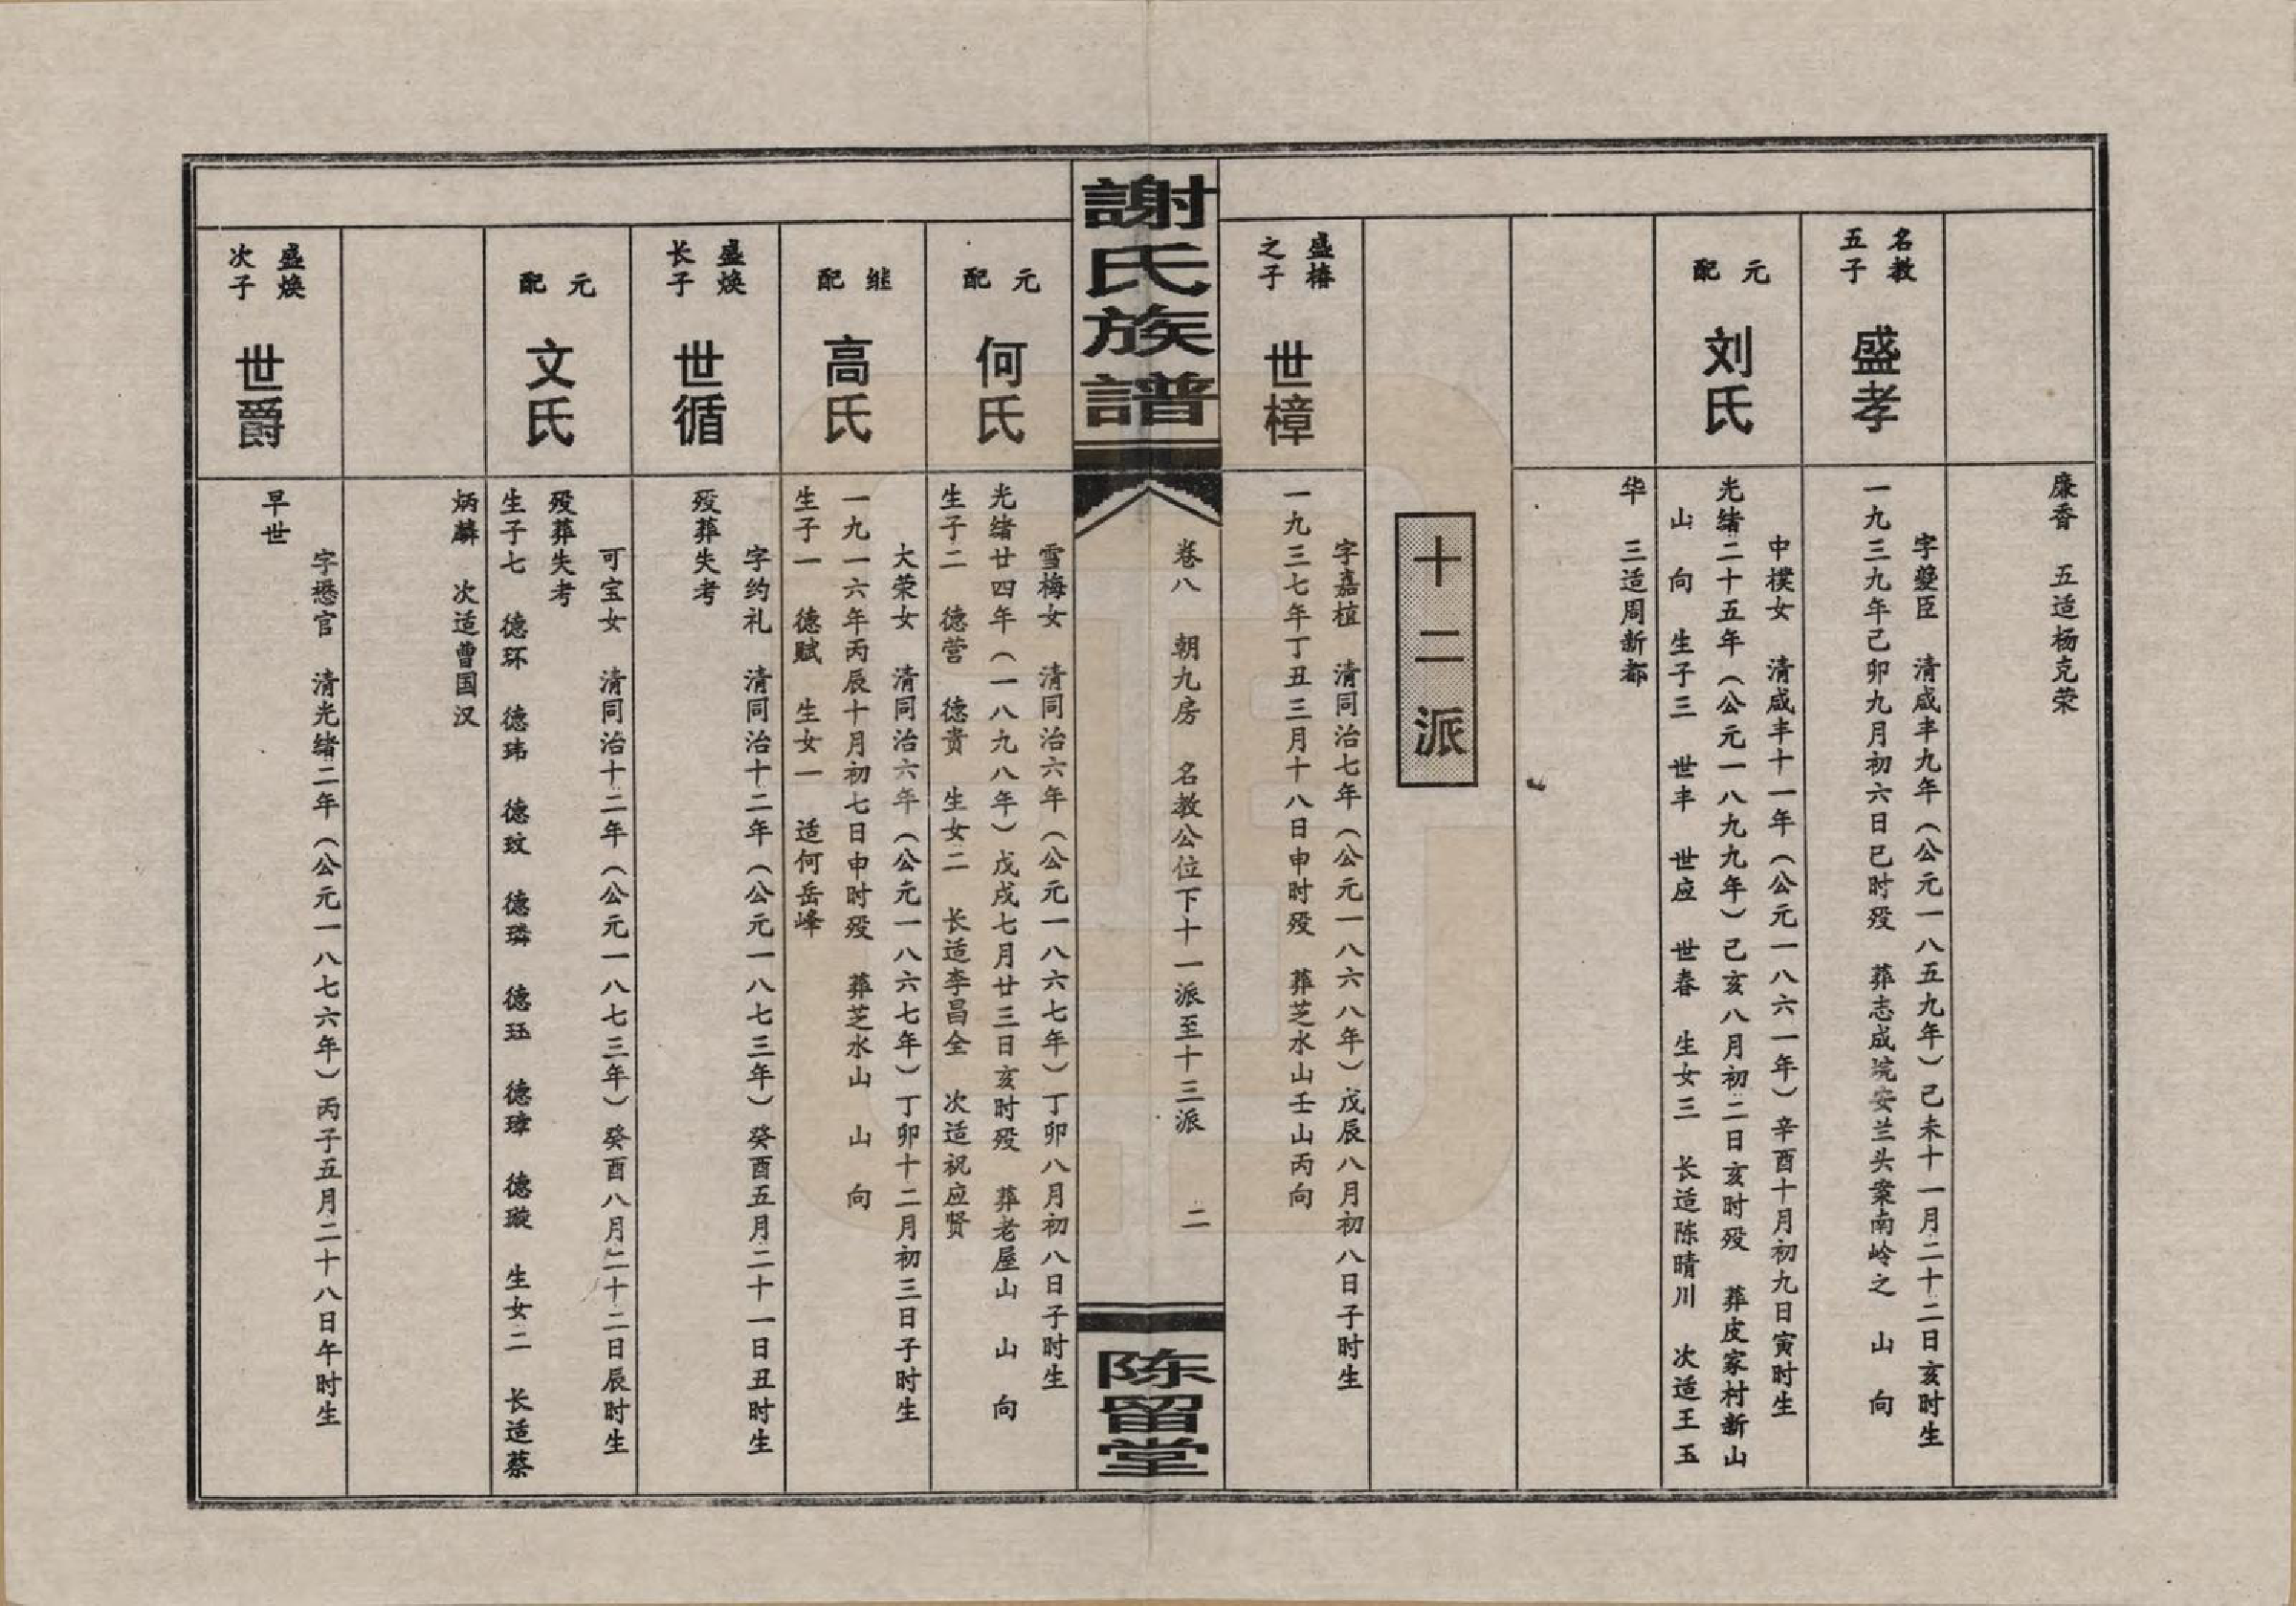 廉香　五适杨克荣
名教
五子
盛孝
字夔臣　清咸丰九年（公元一八五九年）己未十一月二十二日亥时生
一九三九年己卯九月初六日巳时殁　葬志成垸安兰头案南岭之　山　向
元
配
刘氏
中樸女　清咸丰十一年（公元一八六一年）辛酉十月初九日寅时生
光绪二十五年（公元一八九九年）己亥八月初二日亥时殁　葬皮家村新山
山　向　生子三　世丰　世应　世春　生女三　长适陈晴川　次适王玉
华　三适周新都
十二派
盛椿
之子
世樟
字嘉植　清同治七年（公元一八六八年）戊辰八月初八日子时生
一九三七年丁丑三月十八日申时殁　葬芝水山壬山丙向
謝氏族譜
卷八　朝九房　名教公位下十一派至十三派　二
陈留堂
元
配
何氏
雪梅女　清同治六年（公元一八六七年）丁卯八月初八日子时生
光绪廿四年（一八九八年）戊戌七月廿三日亥时殁　葬老屋山　山　向
生子二　德营　德贵　生女二　长适李昌全　次适祝应贤
继
配
高氏
大荣女　清同治六年（公元一八六七年）丁卯十二月初三日子时生
一九一六年丙辰十月初七日申时殁　葬芝水山　山　向
生子一　德赋　生女一　适何岳峰
盛焕
长子
世循
字约礼　清同治十二年（公元一八七三年）癸酉五月二十一日丑时生
殁葬失考
元
配
文氏
可宝女　清同治十二年（公元一八七三年）癸酉八月二十二日辰时生
殁葬失考
生子七　德环　德玮　德玟　德璘　德珏　德璋　德璇　生女二　长适蔡
炳麟　次适曹国汉
盛焕
次子
世爵
字懋官　清光绪二年（公元一八七六年）丙子五月二十八日午时生
早世